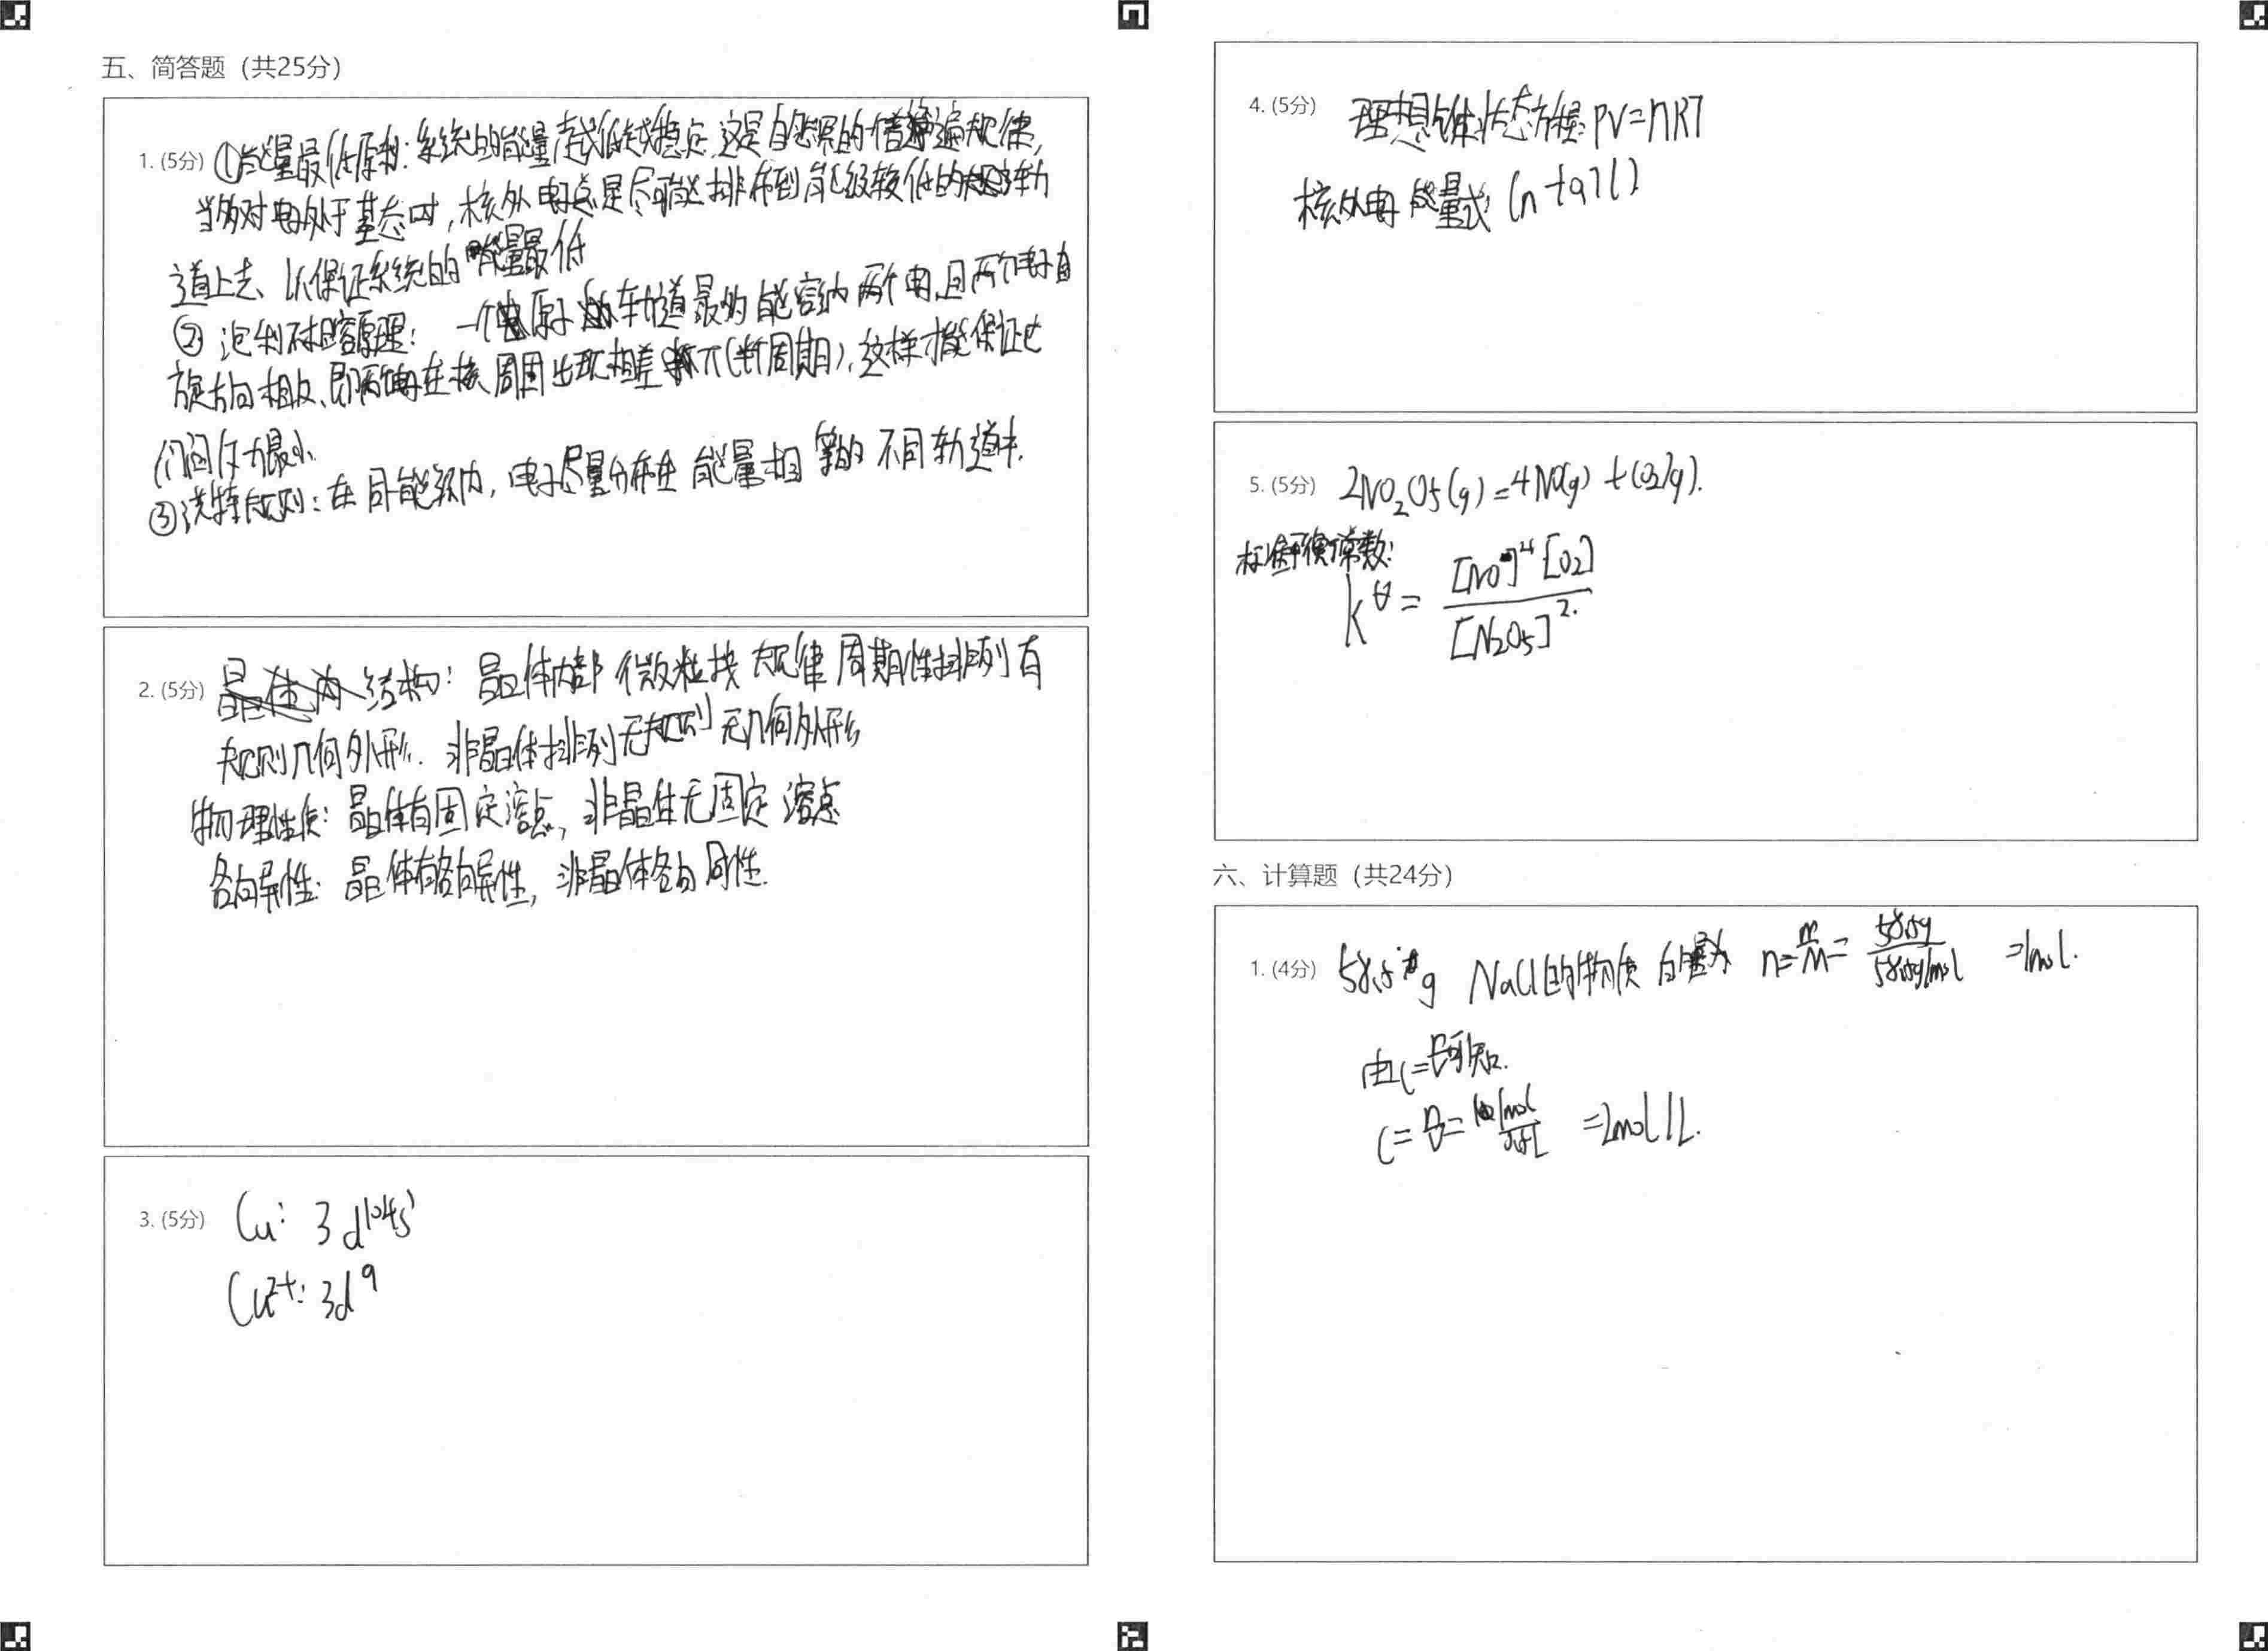 五、简答题（共25分）
1. (5分) ①能量最低原则：系统的能量越低越稳定,这是自然界的普遍规律,
当多对电子处于基态时,核外电子总是尽可能排布到能级较低的轨
道上去、以保证系统的能量最低
② 泡利不相容原理： 一个原子轨道最多能容纳两个电子,且两个电子自
旋方向相反、即两个电子在核周围出现相差π(半个周期),这样才能保证它
们间斥力最小
③洪特规则：在同能级内,电子尽量分布在能量相等的不同轨道中.
2. (5分) 结构：晶体内部微粒按规律周期性排列有
规则几何外形. 非晶体排列无规则无几何外形
物理性质：晶体有固定溶点,非晶体无固定溶点
各向异性：晶体有各向异性,非晶体各向同性.
3. (5分) Cu: 3d¹⁰4s¹
Cu²⁺: 3d⁹
4. (5分) 理想气体状态方程: PV=nRT
核外电子能量式: (n+0.7l)
5. (5分) 2NO₂O5(g)=4NO(g)+O2(g).
标准平衡常数:
K^θ = [NO]⁴[O2] / [N2O5]².
六、计算题（共24分）
1. (4分) 58.5g NaCl的物质的量为 n=m/M=58.5g/58.5g/mol =1mol.
由C=n/V可知.
C=n/V=1mol/0.5L =2mol/L.